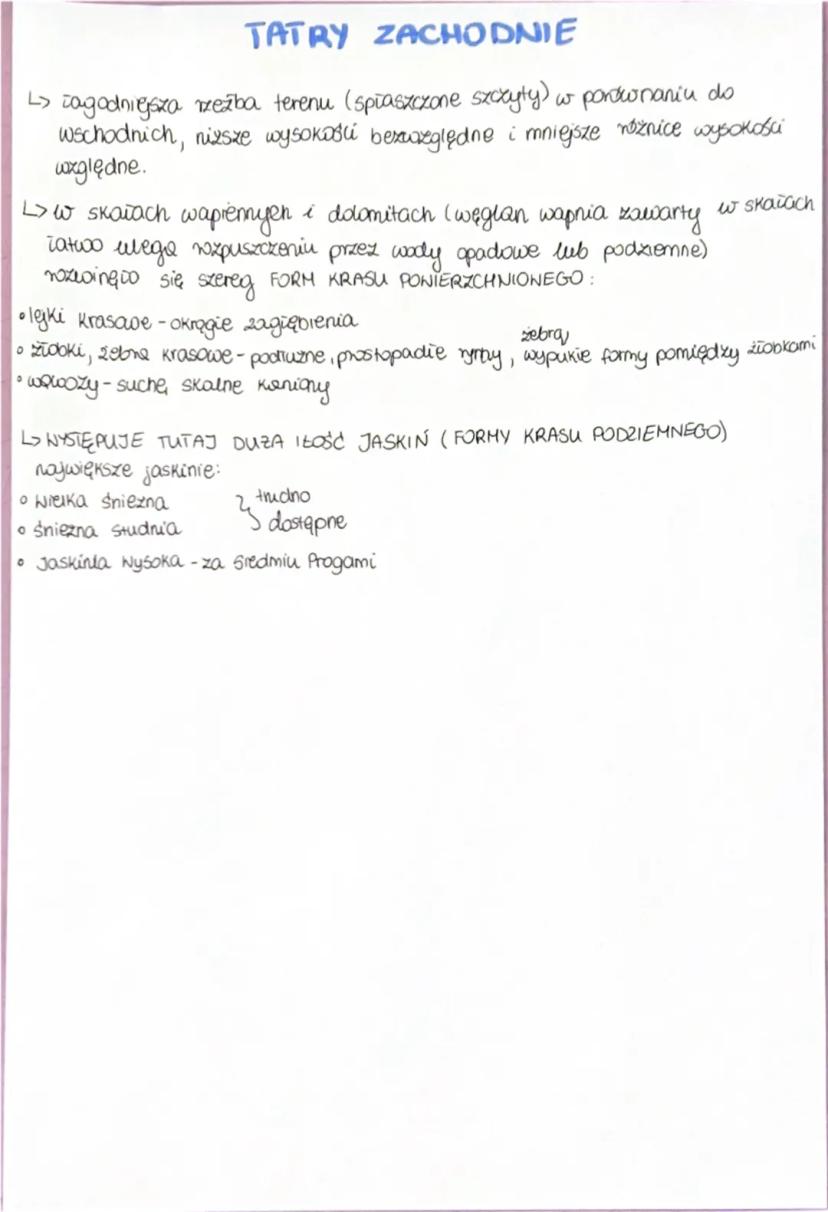 TATRY ZACHODNIE
↳ łagodniejsza rzeźba terenu (spłaszczone szczyty) w porównaniu do
wschodnich, niższe wysokości bezwzględne i mniejsze różnice wysokości
względne.
↳ w skałach wapiennych i dolomitach (węglan wapnia zawarty w skałach
łatwo ulega rozpuszczeniu przez wody opadowe lub podziemne)
rozwinęło się szereg FORM KRASU POWIERZCHNIONEGO:
• lejki krasowe - okrągłe zagłębienia
żebra
• żłobki, żebra krasowe - podłużne, prostopadłe rynny, wypukłe formy pomiędzy żłobkami
• wąwozy - suche, skalne kaniony
↳ WYSTĘPUJE TUTAJ DUŻA ILOŚĆ JASKIŃ (FORMY KRASU PODZIEMNEGO)
największe jaskinie:
• Wielka Śnieżna } trudno
• Śnieżna studnia } dostępne
• Jaskinia Wysoka - za Siedmiu Progami